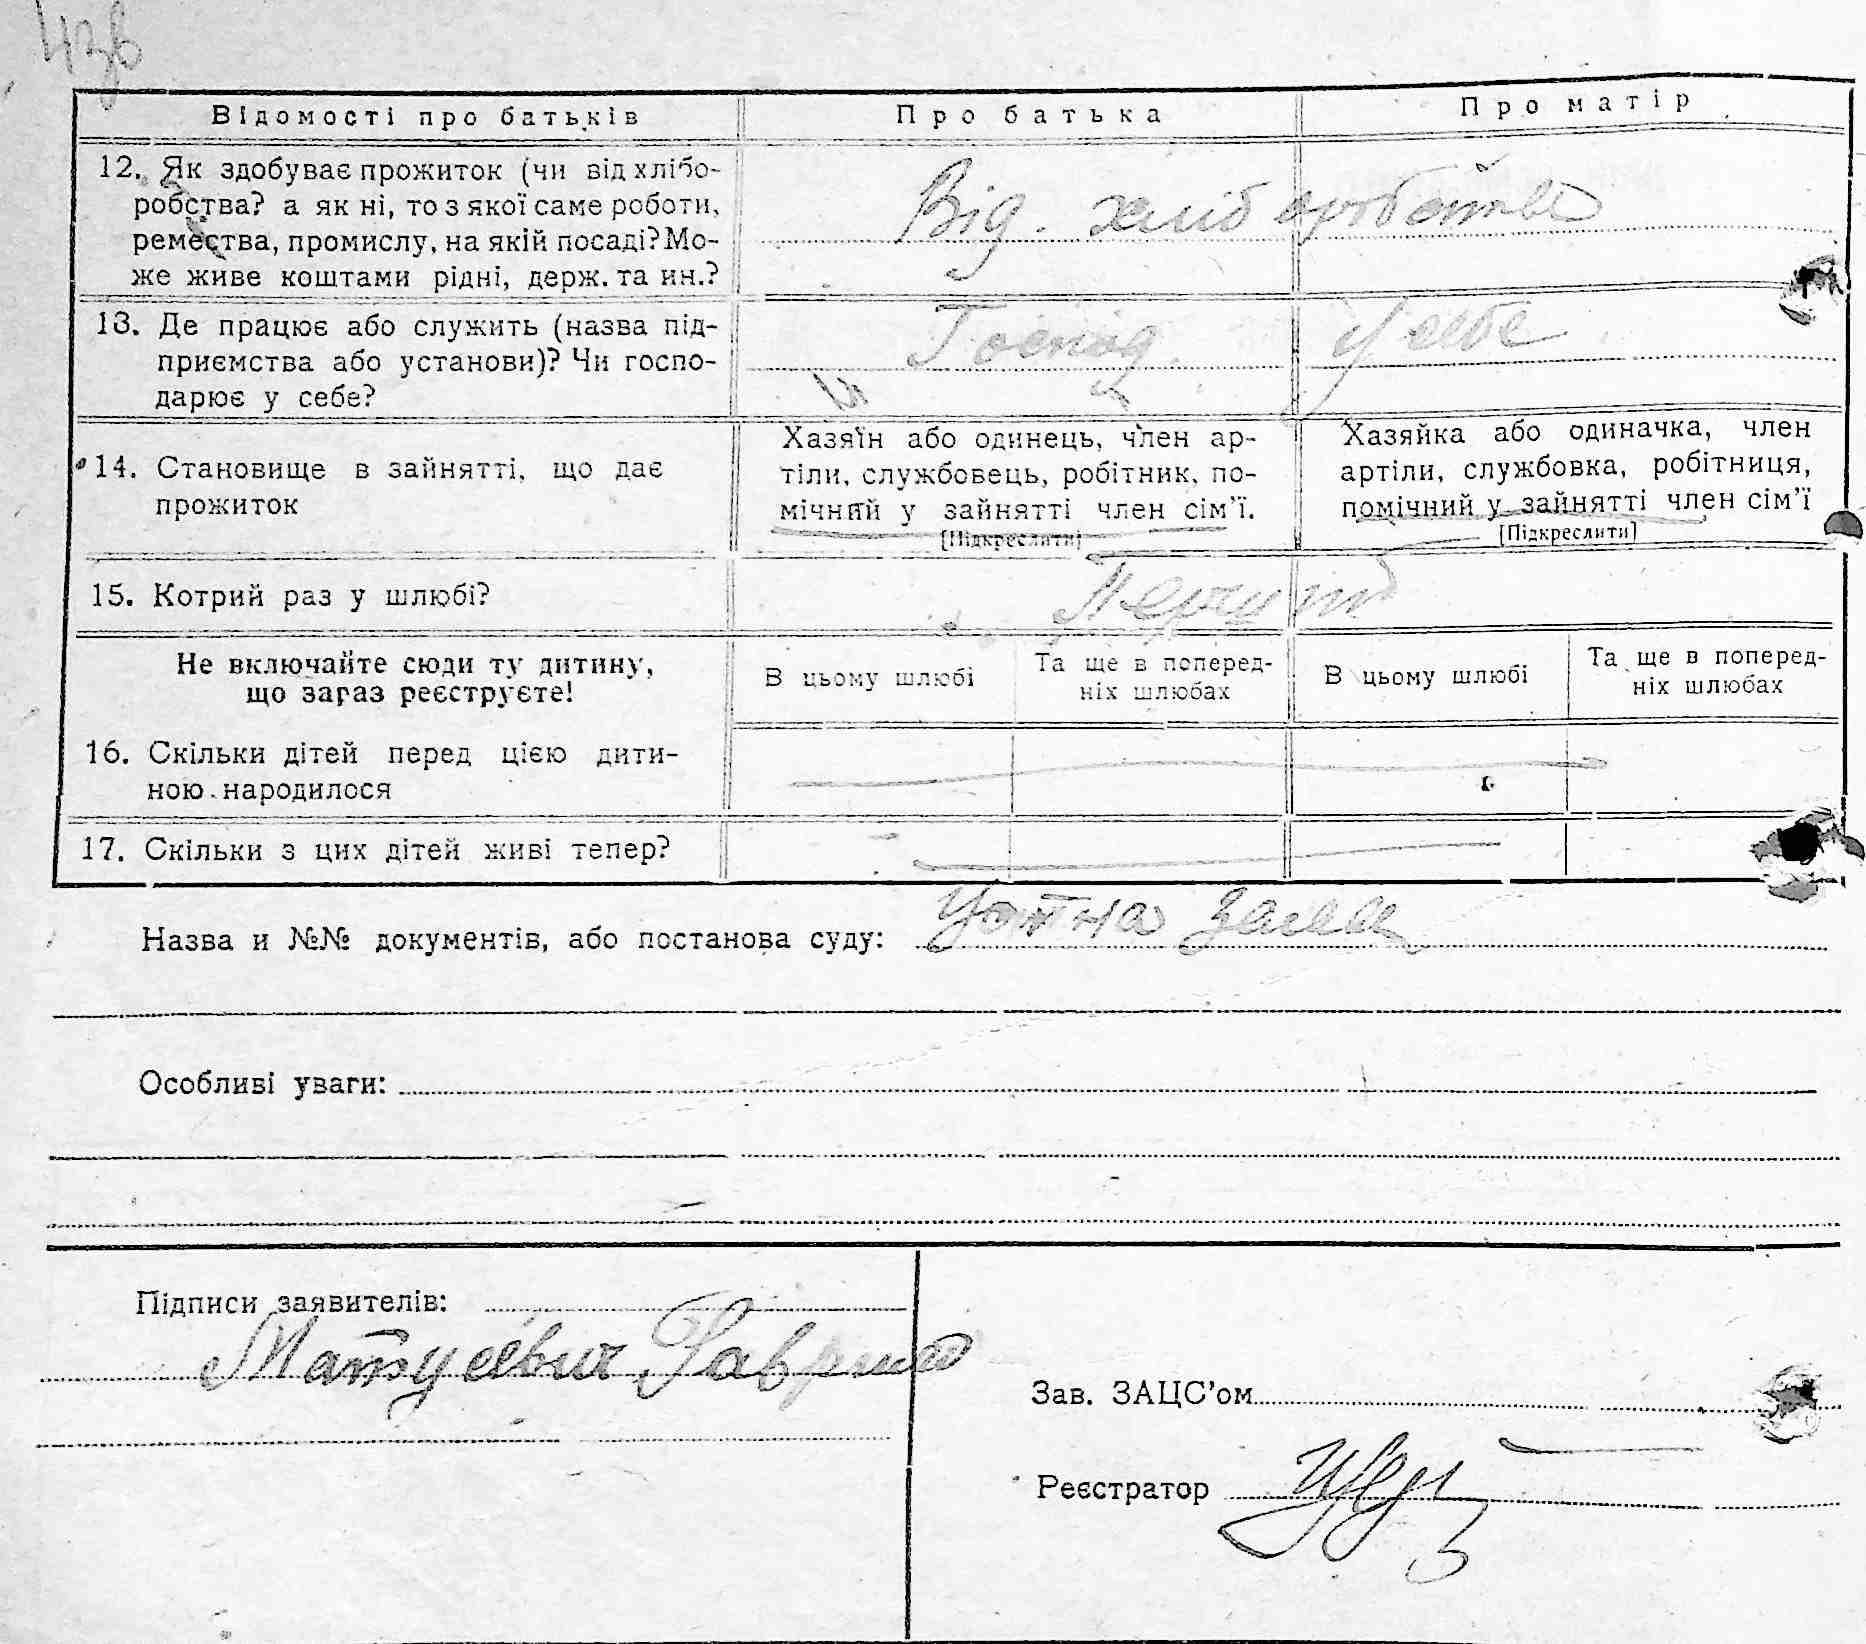 43б
Відомості про батьків Про батька Про матір
12. Як здобуває прожиток (чи від хлібо-
робства? а як ні, то з якої саме роботи,
ремества, промислу, на якій посаді? Мо-
же живе коштами рідні, держ. та ин.?
Від. хліборобства
13. Де працює або служить (назва під-
приємства або установи)? Чи госпо-
дарює у себе?
Господ. у себе
14. Становище в зайнятті, що дає
прожиток
Хазяїн або одинець, член ар-
тіли, службовець, робітник, по-
мічний у зайнятті член сім'ї.
[Підкреслити]
Хазяйка або одиначка, член
артіли, службовка, робітниця,
помічний у зайнятті член сім'ї
[Підкреслити]
15. Котрий раз у шлюбі?
Не включайте сюди ту дитину,
що зараз реєструєте!
В цьому шлюбі
Та ще в поперед-
ніх шлюбах
В цьому шлюбі
Та ще в поперед-
ніх шлюбах
16. Скільки дітей перед цією дити-
ною народилося
17. Скільки з цих дітей живі тепер?
Назва и №№ документів, або постанова суду: Устна заява
Особливі уваги:
Підписи заявителів:
Матусевич Гаврило
Зав. ЗАЦС'ом
Реєстратор